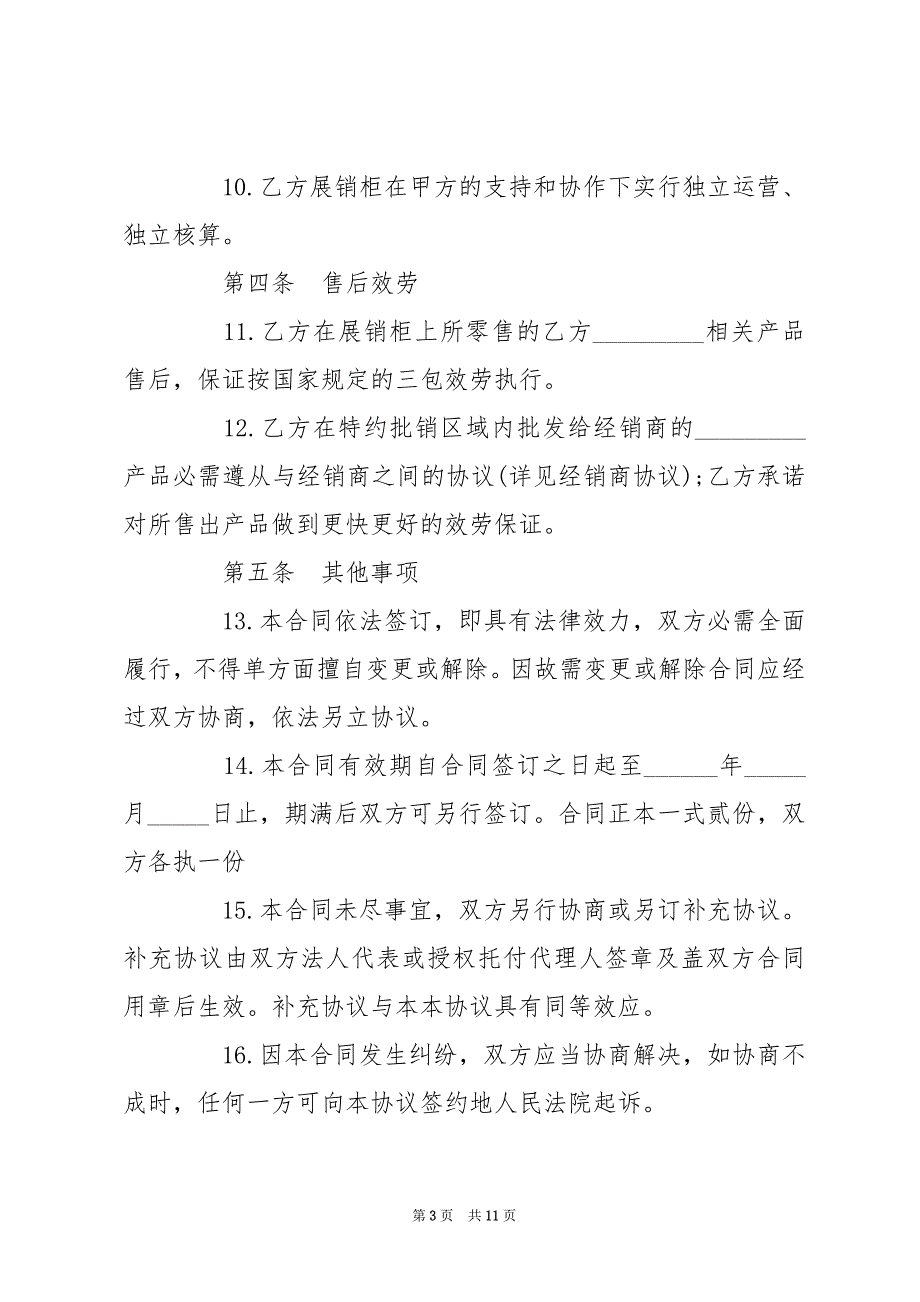 10.乙方展销柜在甲方的支持和协作下实行独立运营、
独立核算。
第四条　售后效劳
11.乙方在展销柜上所零售的乙方_________相关产品
售后，保证按国家规定的三包效劳执行。
12.乙方在特约批销区域内批发给经销商的_________
产品必需遵从与经销商之间的协议(详见经销商协议);乙方承诺
对所售出产品做到更快更好的效劳保证。
第五条　其他事项
13.本合同依法签订，即具有法律效力，双方必需全面
履行，不得单方面擅自变更或解除。因故需变更或解除合同应经
过双方协商，依法另立协议。
14.本合同有效期自合同签订之日起至______年_____
月_____日止，期满后双方可另行签订。合同正本一式贰份，双
方各执一份
15.本合同未尽事宜，双方另行协商或另订补充协议。
补充协议由双方法人代表或授权托付代理人签章及盖双方合同
用章后生效。补充协议与本本协议具有同等效应。
16.因本合同发生纠纷，双方应当协商解决，如协商不
成时，任何一方可向本协议签约地人民法院起诉。
第 3 页　共 11 页